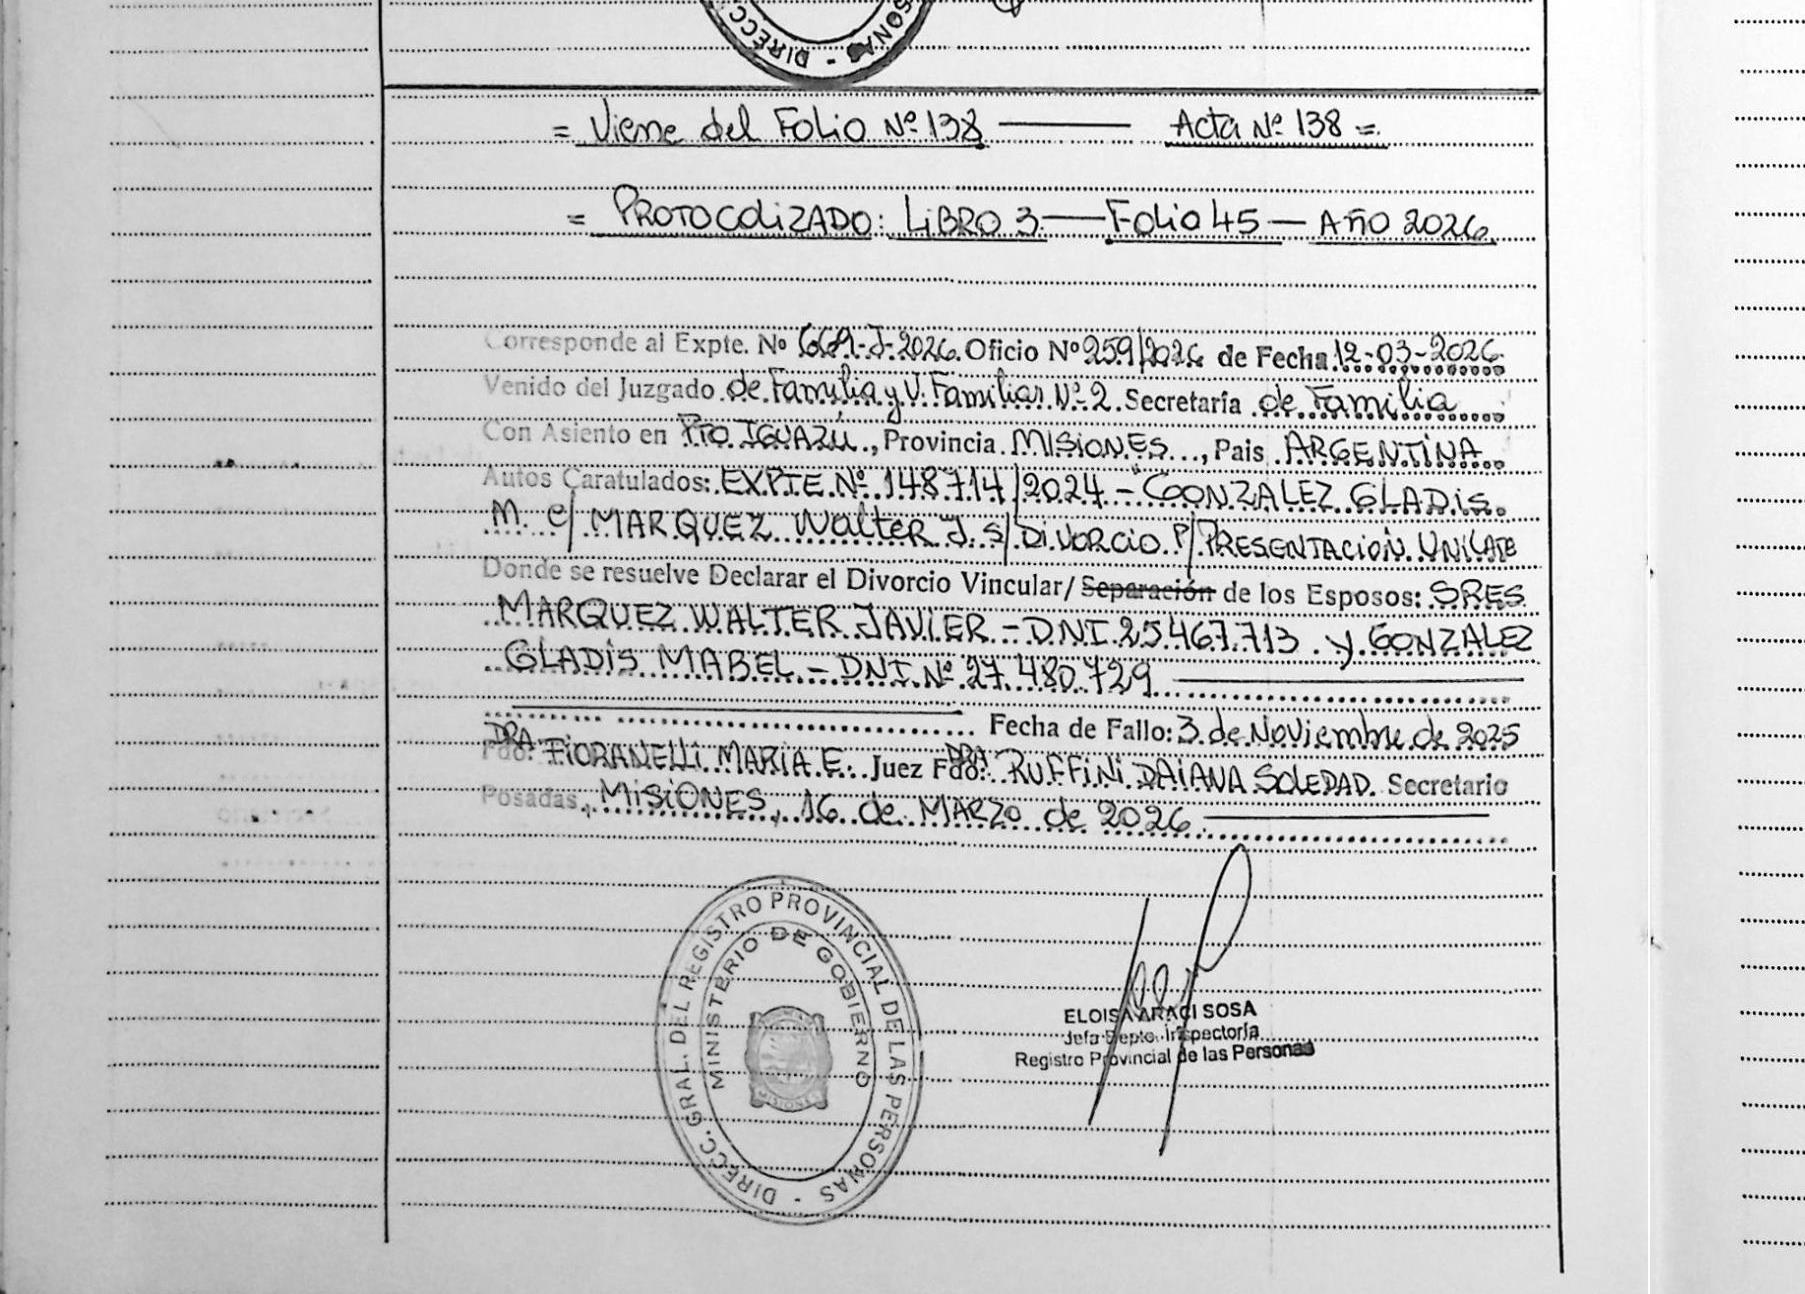 DIRECC. SONAS -
= Viene del Folio Nº 138 — Acta Nº 138 =
= PROTOCOLIZADO: LIBRO 3 — Folio 45 — AÑO 2026
Corresponde al Expte. Nº 6681-J-2026. Oficio Nº 259/2026 de Fecha 12-03-2026
Venido del Juzgado de Familia y V. Familiar Nº 2. Secretaría de Familia
Con Asiento en Pto. IGUAZÚ, Provincia MISIONES, Pais ARGENTINA
Autos Caratulados: EXPTE. Nº 148714/2024 - GONZALEZ GLADIS
M. c/ MARQUEZ Walter J. S/ DIVORCIO P/ PRESENTACIÓN UNILATE
Donde se resuelve Declarar el Divorcio Vincular/ Separación de los Esposos: SRES
MARQUEZ WALTER JAVIER - DNI. 25.467.713 y GONZALEZ
GLADIS MABEL - DNI Nº 27.480.729
Fecha de Fallo: 3 de Noviembre de 2025
Fdo: DRA FIORANELLI MARIA E. Juez Fdo: DRA RUFFINI DAIANA SOLEDAD. Secretario
Posadas, MISIONES, 16 de MARZO de 2026
DIRECC. GRAL. DEL REGISTRO PROVINCIAL DE LAS PERSONAS -
MINISTERIO DE GOBIERNO
MISIONES
ELOISA ARACI SOSA
Jefa Depto. Inspectoría
Registro Provincial de las Personas